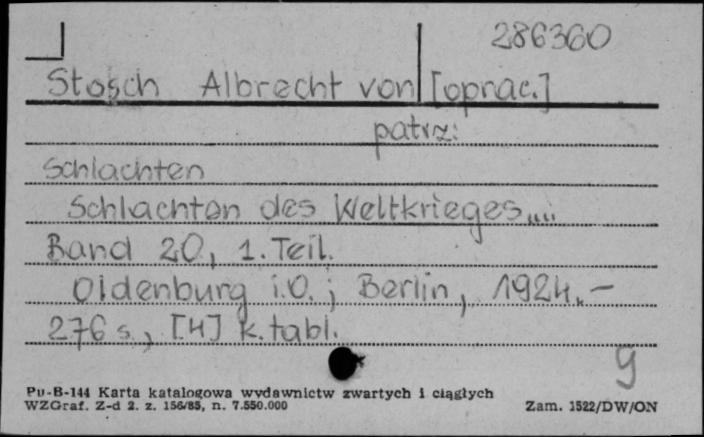 286360
Stosch Albrecht von [oprac.]
patrz:
Schlachten
Schlachten des Weltkrieges....
Band 20, 1. Teil.
Oldenburg i.O. ; Berlin, 1924.-
276 s., [4] k. tabl.
9
Pu-B-144 Karta katalogowa wydawnictw zwartych i ciągłych
WZGraf. Z-d 2. z. 156/85, n. 7.550.000
Zam. 1522/DW/ON